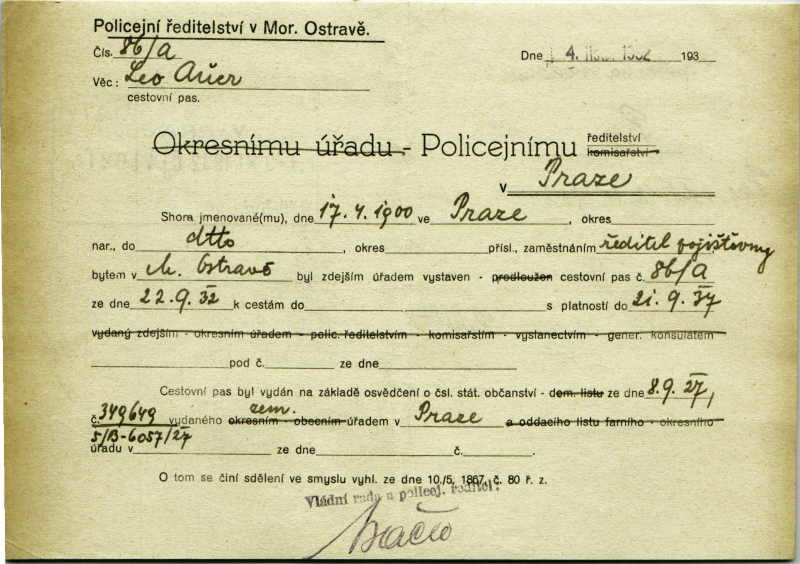 Policejní ředitelství v Mor. Ostravě.
Čís. 86/A
Dne 4. 1932 193
Věc: Leo Auer
cestovní pas.
Okresnímu úřadu - Policejnímu ředitelství
komisařství
v Praze
Shora jmenované(mu), dne 17.4.1900 ve Praze, okres
nar., do dtto, okres přísl., zaměstnáním ředitel pojišťovny
bytem v M. Ostravě byl zdejším úřadem vystaven - predloužen cestovní pas č. 86/A
ze dne 22.9.32 k cestám do s platností do 21.9.37
vydaný zdejším - okresním úřadem - polic. ředitelstvím - komisařstvím - vyslanectvím - gener. konsulátem
pod č. ze dne
Cestovní pas byl vydán na základě osvědčení o čsl. stát. občanství - dom. listu ze dne 8.9.27,
č. 349649 vydaného okresním - obecním zem. úřadem v Praze a oddacího listu farního - okresního
5/B-6057/27
úřadu v ze dne č.
O tom se činí sdělení ve smyslu vyhl. ze dne 10./5. 1867, č. 80 ř. z.
Vládní rada a policej. ředitel: